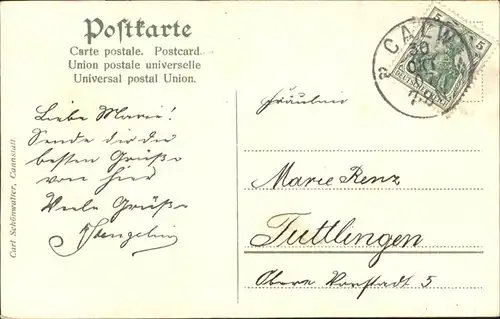 Postkarte
Carte postale. Postcard.
Union postale universelle
Universal postal Union.
Liebe Marie!
Sende dir die
besten Grüße
von hier
Viele Grüße
Carl Schönwalter, Cannstatt.
5 5
DEUTSCHES REICH
CALW
30
OKT
Fräulein
Marie Renz
Tuttlingen
Obere Vorstadt 5